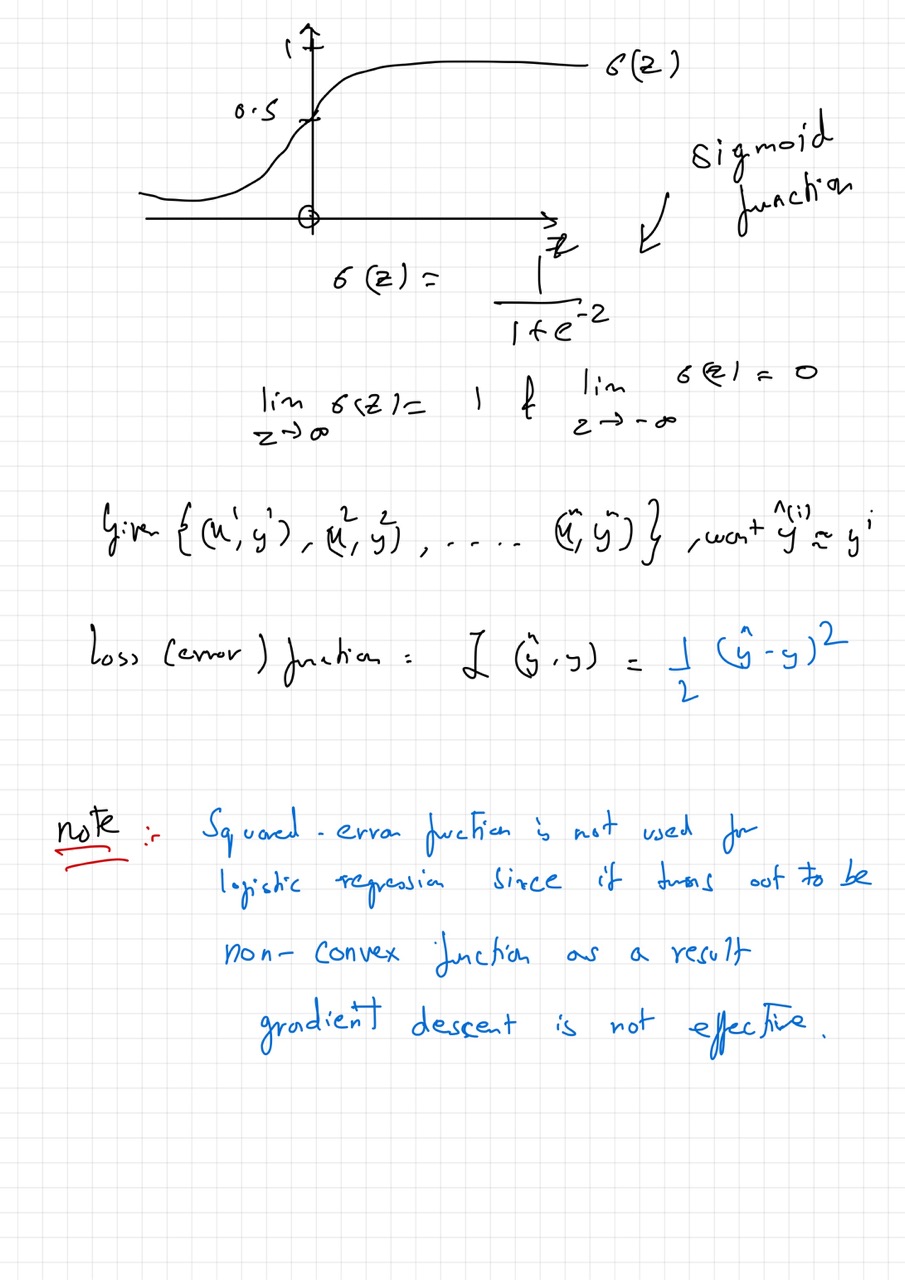 1
σ(z)
0.5
sigmoid
function
z
σ(z) = 1 / (1 + e^-z)
lim z→∞ σ(z) = 1 & lim z→-∞ σ(z) = 0
Given {(x¹, y¹), (x², y²), ..... (xⁿ, yⁿ)}, want ŷ⁽ⁱ⁾ ≈ yⁱ
Loss (error) function : L (ŷ, y) = 1/2 (ŷ - y)²
note :- Squared-error function is not used for
logistic regression since it turns out to be
non-convex function as a result
gradient descent is not effective.